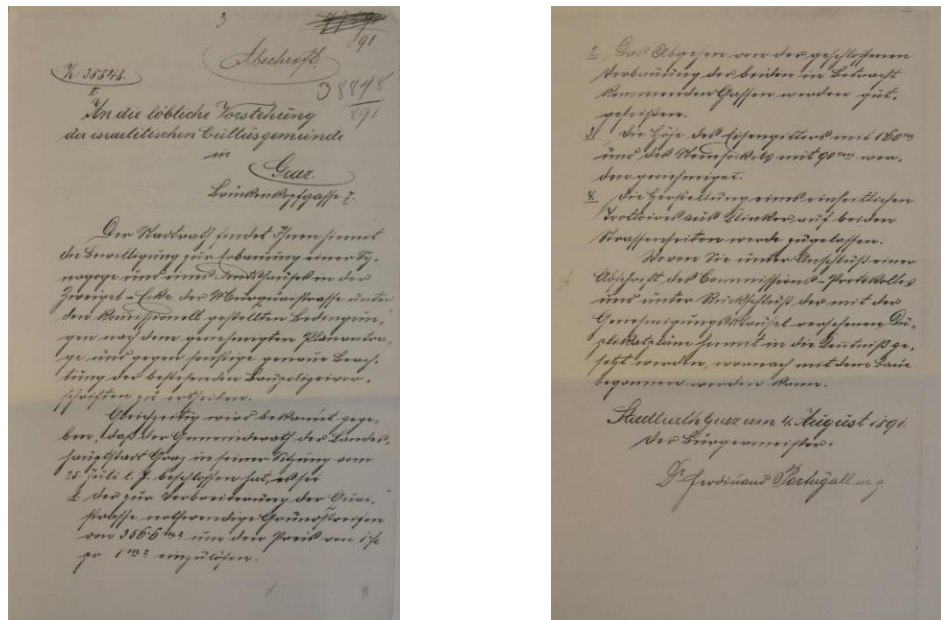 3
891
Abschrift.
Z: 38848.
I.
38848
891
An die löbliche Vorstehung
der israelitischen Cultusgemeinde
in
Graz.
Brückenkopfgasse 7.
Der Stadtrath findet Ihnen hiemit
die Bewilligung zur Erbauung einer Sy-
nagoge und eines Amtshauses an der
Zweigel-Ecke der Murquaistrasse unter
den komissionell gestellten Bedingun-
gen nach dem genehmigten Planantra-
ge und gegen sonstige genaue Beach-
tung der bestehenden Baupolizeivor-
schriften zu ertheilen.
Gleichzeitig wird bekannt gege-
ben, daß der Gemeinderath der Landes-
hauptstadt Graz in seiner Sitzung vom
25. Juli l. J. beschlossen hat, es sei
1. der zur Verbreiterung der Quai-
strasse nothwendige Grundstreifen
von 356.6 m2 um den Preis von 1 fl
pr 1 m2 einzulösen.
2. Das Abgehen von der geschlossenen
Verbauung der beiden in Betracht
kommenden Gassen werden gut-
geheißen.
3. Die Höhe des Eisengitters mit 160 cm
und des Steinsockels mit 90 cm wer-
den genehmiget.
4. Die Herstellung eines einheitlichen
Trottoires aus Klinker auf beiden
Strassenseiten werde zugelassen.
Wovon Sie unter Anschluß einer
Abschrift des Commissions-Protokolles
und unter Rückschluß der mit der
Genehmigungsklausel versehenen Du-
plikatpläne hiemit in die Kenntniß ge-
setzt werden, wornach mit dem Baue
begonnen werden kann.
Stadtrath Graz am 4. August 1891.
Der Bürgermeister.
Dr. Ferdinand Portugall m. p.